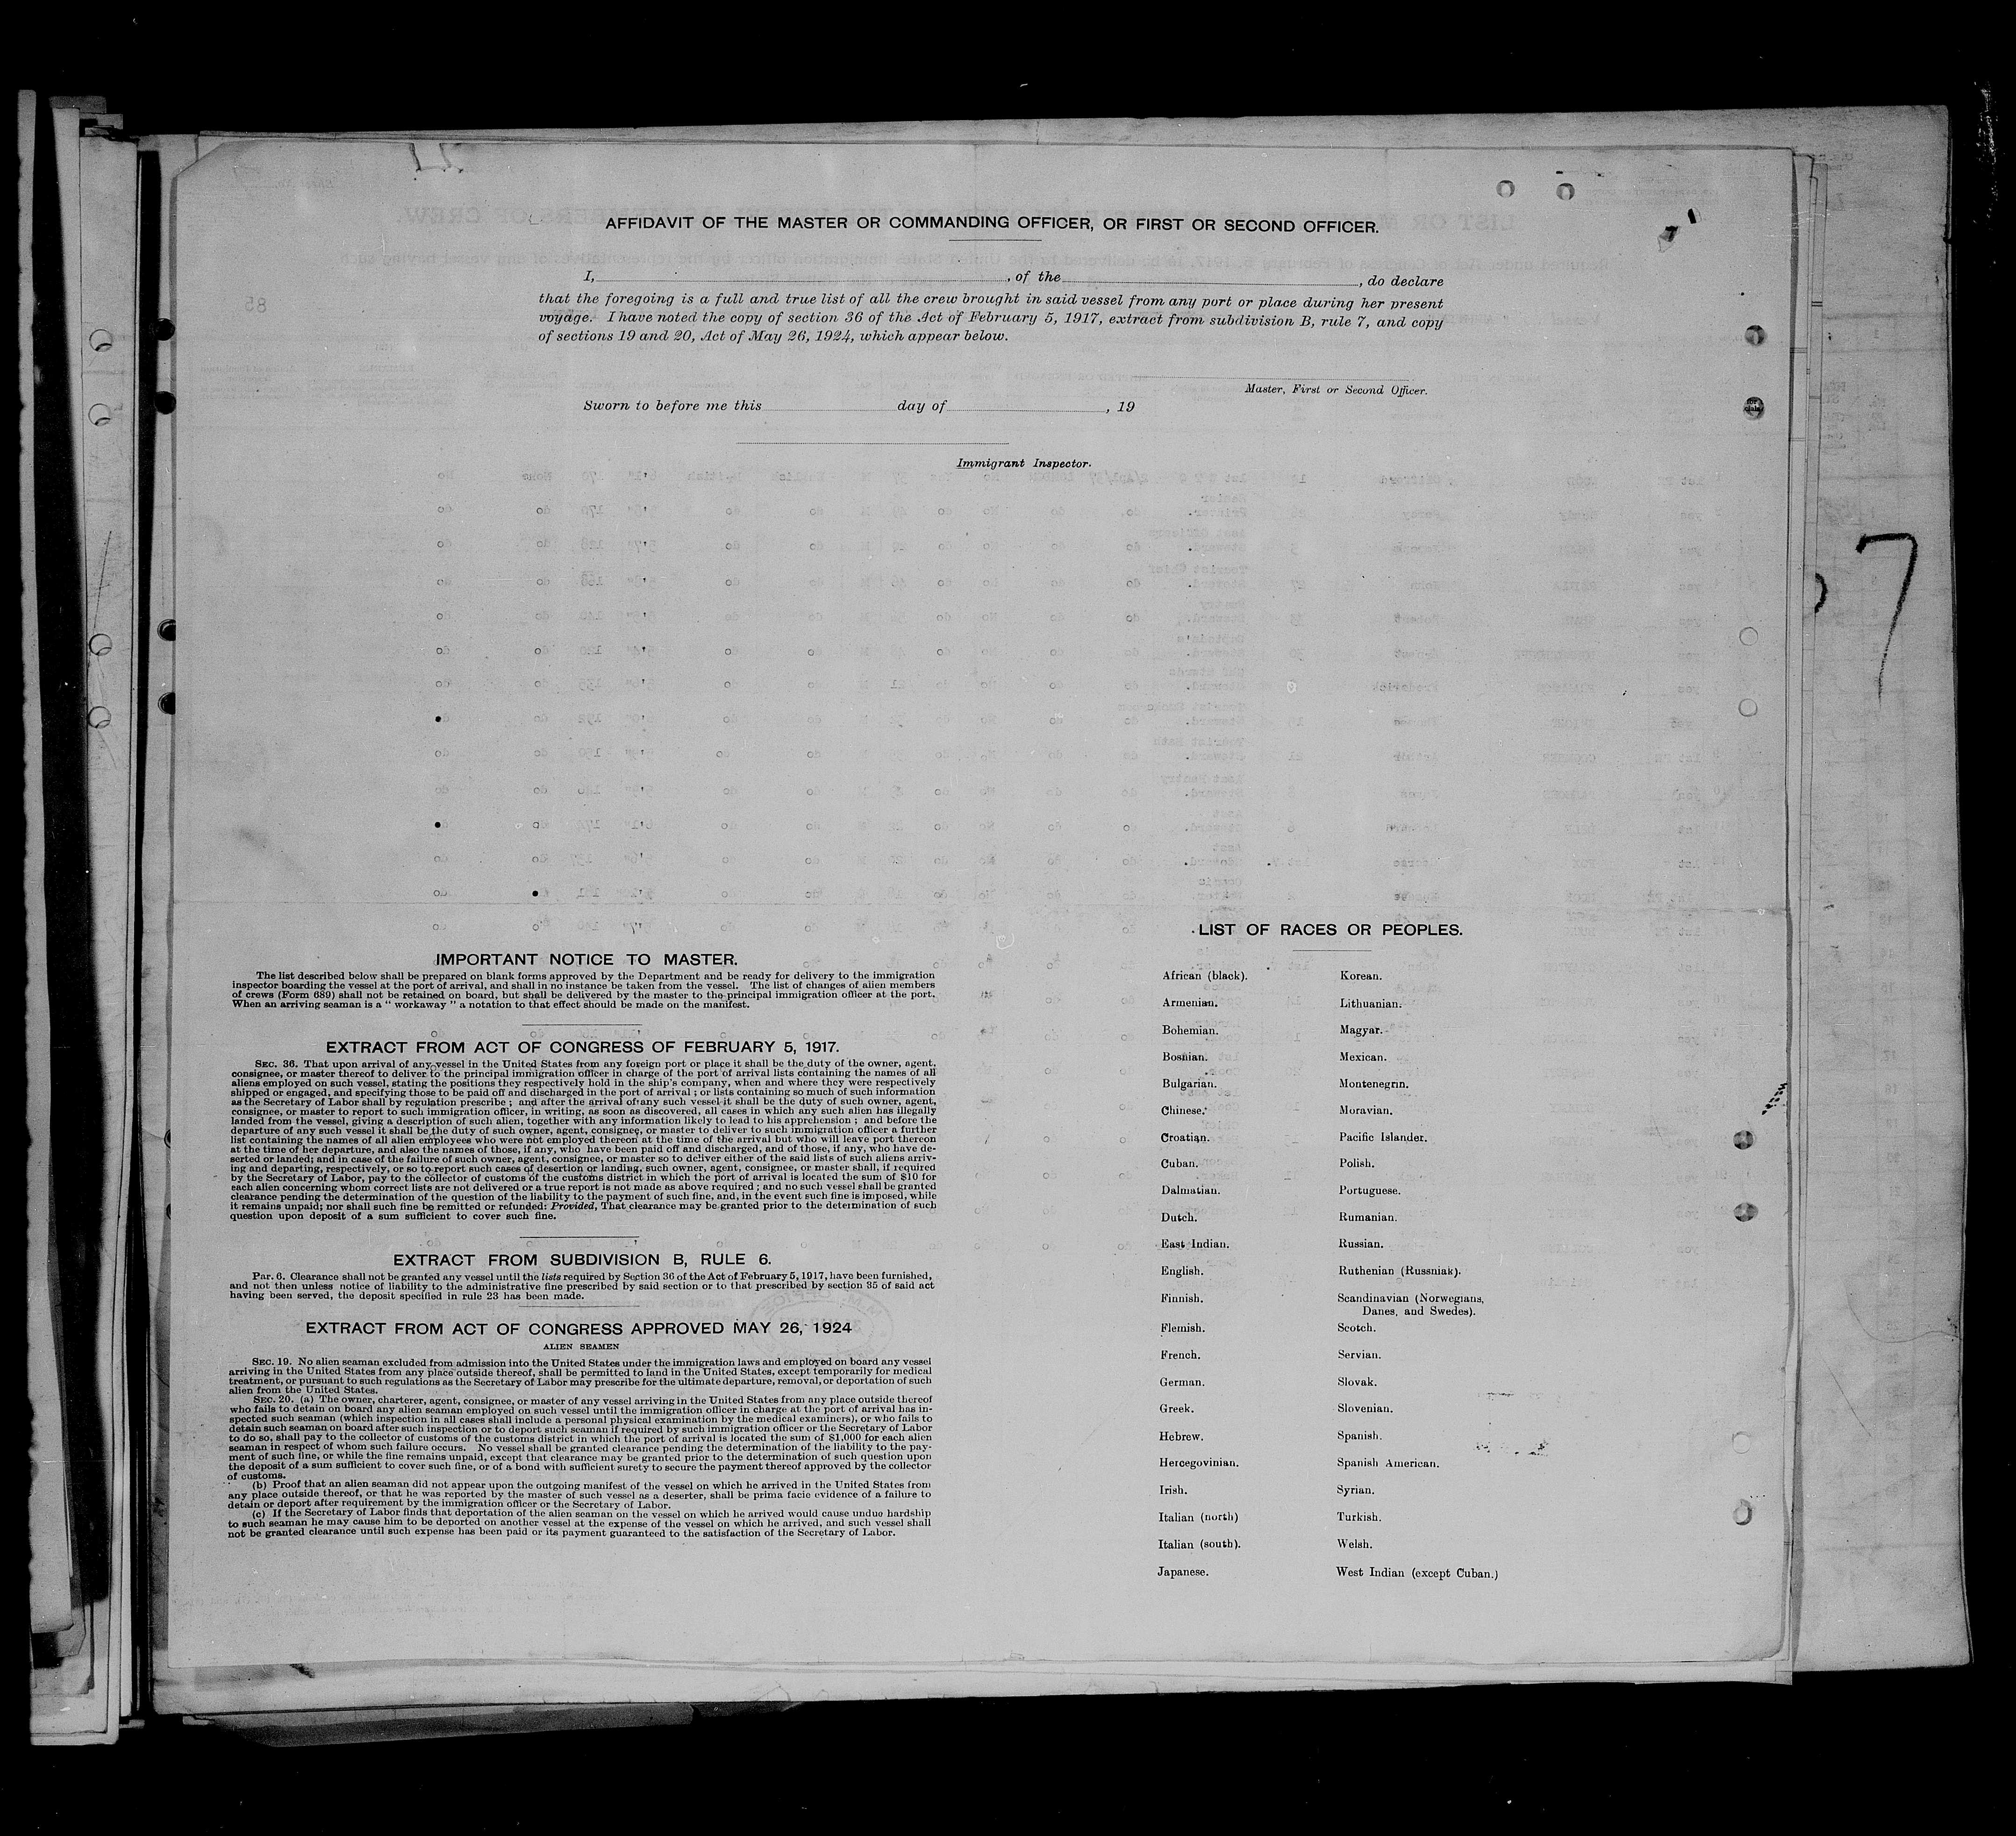 AFFIDAVIT OF THE MASTER OR COMMANDING OFFICER, OR FIRST OR SECOND OFFICER.
I, , of the , do declare
that the foregoing is a full and true list of all the crew brought in said vessel from any port or place during her present
voyage. I have noted the copy of section 36 of the Act of February 5, 1917, extract from subdivision B, rule 7, and copy
of sections 19 and 20, Act of May 26, 1924, which appear below.
Master, First or Second Officer.
Sworn to before me this day of , 19
Immigrant Inspector.
7
IMPORTANT NOTICE TO MASTER.
The list described below shall be prepared on blank forms approved by the Department and be ready for delivery to the immigration
inspector boarding the vessel at the port of arrival, and shall in no instance be taken from the vessel. The list of changes of alien members
of crews (Form 689) shall not be retained on board, but shall be delivered by the master to the principal immigration officer at the port.
When an arriving seaman is a " workaway " a notation to that effect should be made on the manifest.
EXTRACT FROM ACT OF CONGRESS OF FEBRUARY 5, 1917.
SEC. 36. That upon arrival of any vessel in the United States from any foreign port or place it shall be the duty of the owner, agent,
consignee, or master thereof to deliver to the principal immigration officer in charge of the port of arrival lists containing the names of all
aliens employed on such vessel, stating the positions they respectively hold in the ship's company, when and where they were respectively
shipped or engaged, and specifying those to be paid off and discharged in the port of arrival ; or lists containing so much of such information
as the Secretary of Labor shall by regulation prescribe ; and after the arrival of any such vessel it shall be the duty of such owner, agent,
consignee, or master to report to such immigration officer, in writing, as soon as discovered, all cases in which any such alien has illegally
landed from the vessel, giving a description of such alien, together with any information likely to lead to his apprehension ; and before the
departure of any such vessel it shall be the duty of such owner, agent, consignee, or master to deliver to such immigration officer a further
list containing the names of all alien employees who were not employed thereon at the time of the arrival but who will leave port thereon
at the time of her departure, and also the names of those, if any, who have been paid off and discharged, and of those, if any, who have de-
serted or landed; and in case of the failure of such owner, agent, consignee, or master so to deliver either of the said lists of such aliens arriv-
ing and departing, respectively, or so to report such cases of desertion or landing, such owner, agent, consignee, or master shall, if required
by the Secretary of Labor, pay to the collector of customs of the customs district in which the port of arrival is located the sum of $10 for
each alien concerning whom correct lists are not delivered or a true report is not made as above required ; and no such vessel shall be granted
clearance pending the determination of the question of the liability to the payment of such fine, and, in the event such fine is imposed, while
it remains unpaid; nor shall such fine be remitted or refunded: Provided, That clearance may be granted prior to the determination of such
question upon deposit of a sum sufficient to cover such fine.
EXTRACT FROM SUBDIVISION B, RULE 6.
Par. 6. Clearance shall not be granted any vessel until the lists required by Section 36 of the Act of February 5, 1917, have been furnished,
and not then unless notice of liability to the administrative fine prescribed by said section or to that prescribed by section 35 of said act
having been served, the deposit specified in rule 23 has been made.
EXTRACT FROM ACT OF CONGRESS APPROVED MAY 26, 1924
ALIEN SEAMEN
SEC. 19. No alien seaman excluded from admission into the United States under the immigration laws and employed on board any vessel
arriving in the United States from any place outside thereof, shall be permitted to land in the United States, except temporarily for medical
treatment, or pursuant to such regulations as the Secretary of Labor may prescribe for the ultimate departure, removal, or deportation of such
alien from the United States.
SEC. 20. (a) The owner, charterer, agent, consignee, or master of any vessel arriving in the United States from any place outside thereof
who fails to detain on board any alien seaman employed on such vessel until the immigration officer in charge at the port of arrival has in-
spected such seaman (which inspection in all cases shall include a personal physical examination by the medical examiners), or who fails to
detain such seaman on board after such inspection or to deport such seaman if required by such immigration officer or the Secretary of Labor
to do so, shall pay to the collector of customs of the customs district in which the port of arrival is located the sum of $1,000 for each alien
seaman in respect of whom such failure occurs. No vessel shall be granted clearance pending the determination of the liability to the pay-
ment of such fine, or while the fine remains unpaid, except that clearance may be granted prior to the determination of such question upon
the deposit of a sum sufficient to cover such fine, or of a bond with sufficient surety to secure the payment thereof approved by the collector
of customs.
(b) Proof that an alien seaman did not appear upon the outgoing manifest of the vessel on which he arrived in the United States from
any place outside thereof, or that he was reported by the master of such vessel as a deserter, shall be prima facie evidence of a failure to
detain or deport after requirement by the immigration officer or the Secretary of Labor.
(c) If the Secretary of Labor finds that deportation of the alien seaman on the vessel on which he arrived would cause undue hardship
to such seaman he may cause him to be deported on another vessel at the expense of the vessel on which he arrived, and such vessel shall
not be granted clearance until such expense has been paid or its payment guaranteed to the satisfaction of the Secretary of Labor.
LIST OF RACES OR PEOPLES.
African (black).
Armenian.
Bohemian.
Bosnian.
Bulgarian.
Chinese.
Croatian.
Cuban.
Dalmatian.
Dutch.
East Indian.
English.
Finnish.
Flemish.
French.
German.
Greek.
Hebrew.
Hercegovinian.
Irish.
Italian (north)
Italian (south).
Japanese.
Korean.
Lithuanian.
Magyar.
Mexican.
Montenegrin.
Moravian.
Pacific Islander.
Polish.
Portuguese.
Rumanian.
Russian.
Ruthenian (Russniak).
Scandinavian (Norwegians,
Danes, and Swedes).
Scotch.
Servian.
Slovak.
Slovenian.
Spanish.
Spanish American.
Syrian.
Turkish.
Welsh.
West Indian (except Cuban.)